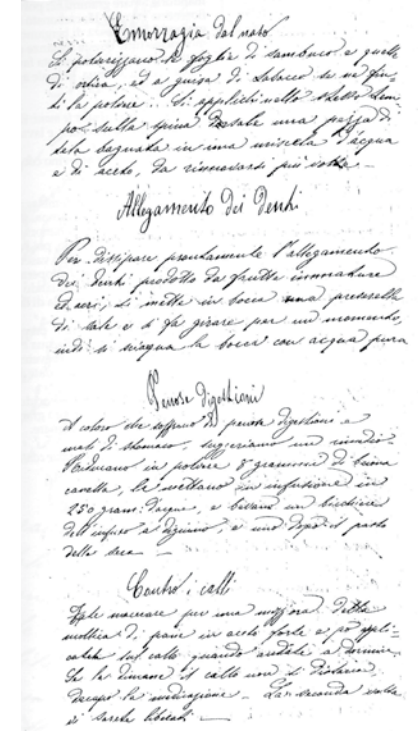 Emorragia dal naso
Si polverizzano le foglie di sambuco e quelle
di ortica, ed a guisa di tabacco se ne fiu-
ti la polvere. Si applichi nello stesso tem-
po sulla spina dorsale una pezza di
tela bagnata in una miscela d'acqua
e di aceto, da rinnovarsi più volte –
Allegamento dei Denti
Per dissipare prontamente l'allegamento
dei denti prodotto da frutta immature
ed acri, si mette in bocca una presella
di sale e si fa girare per un momento,
indi si sciaqua la bocca con acqua pura
Penose digestioni
A coloro che soffrono di penose digestioni e
mali di stomaco, suggeriamo un rimedio
Riducano in polvere 8 gramme di buona
canella, la mettano in infusione in
250 gram. d'acqua, e bevano un bicchiere
dell'infuso a digiuno, e uno dopo il pasto
della sera –
Contro i calli
Fate macerare per una mezz'ora della
mollica di pane in aceto forte e poi appli-
catela sul callo quando andate a dormire.
Se la dimane il callo non si distacca,
decapo la medicazione – La seconda volta
ne sarete liberati –